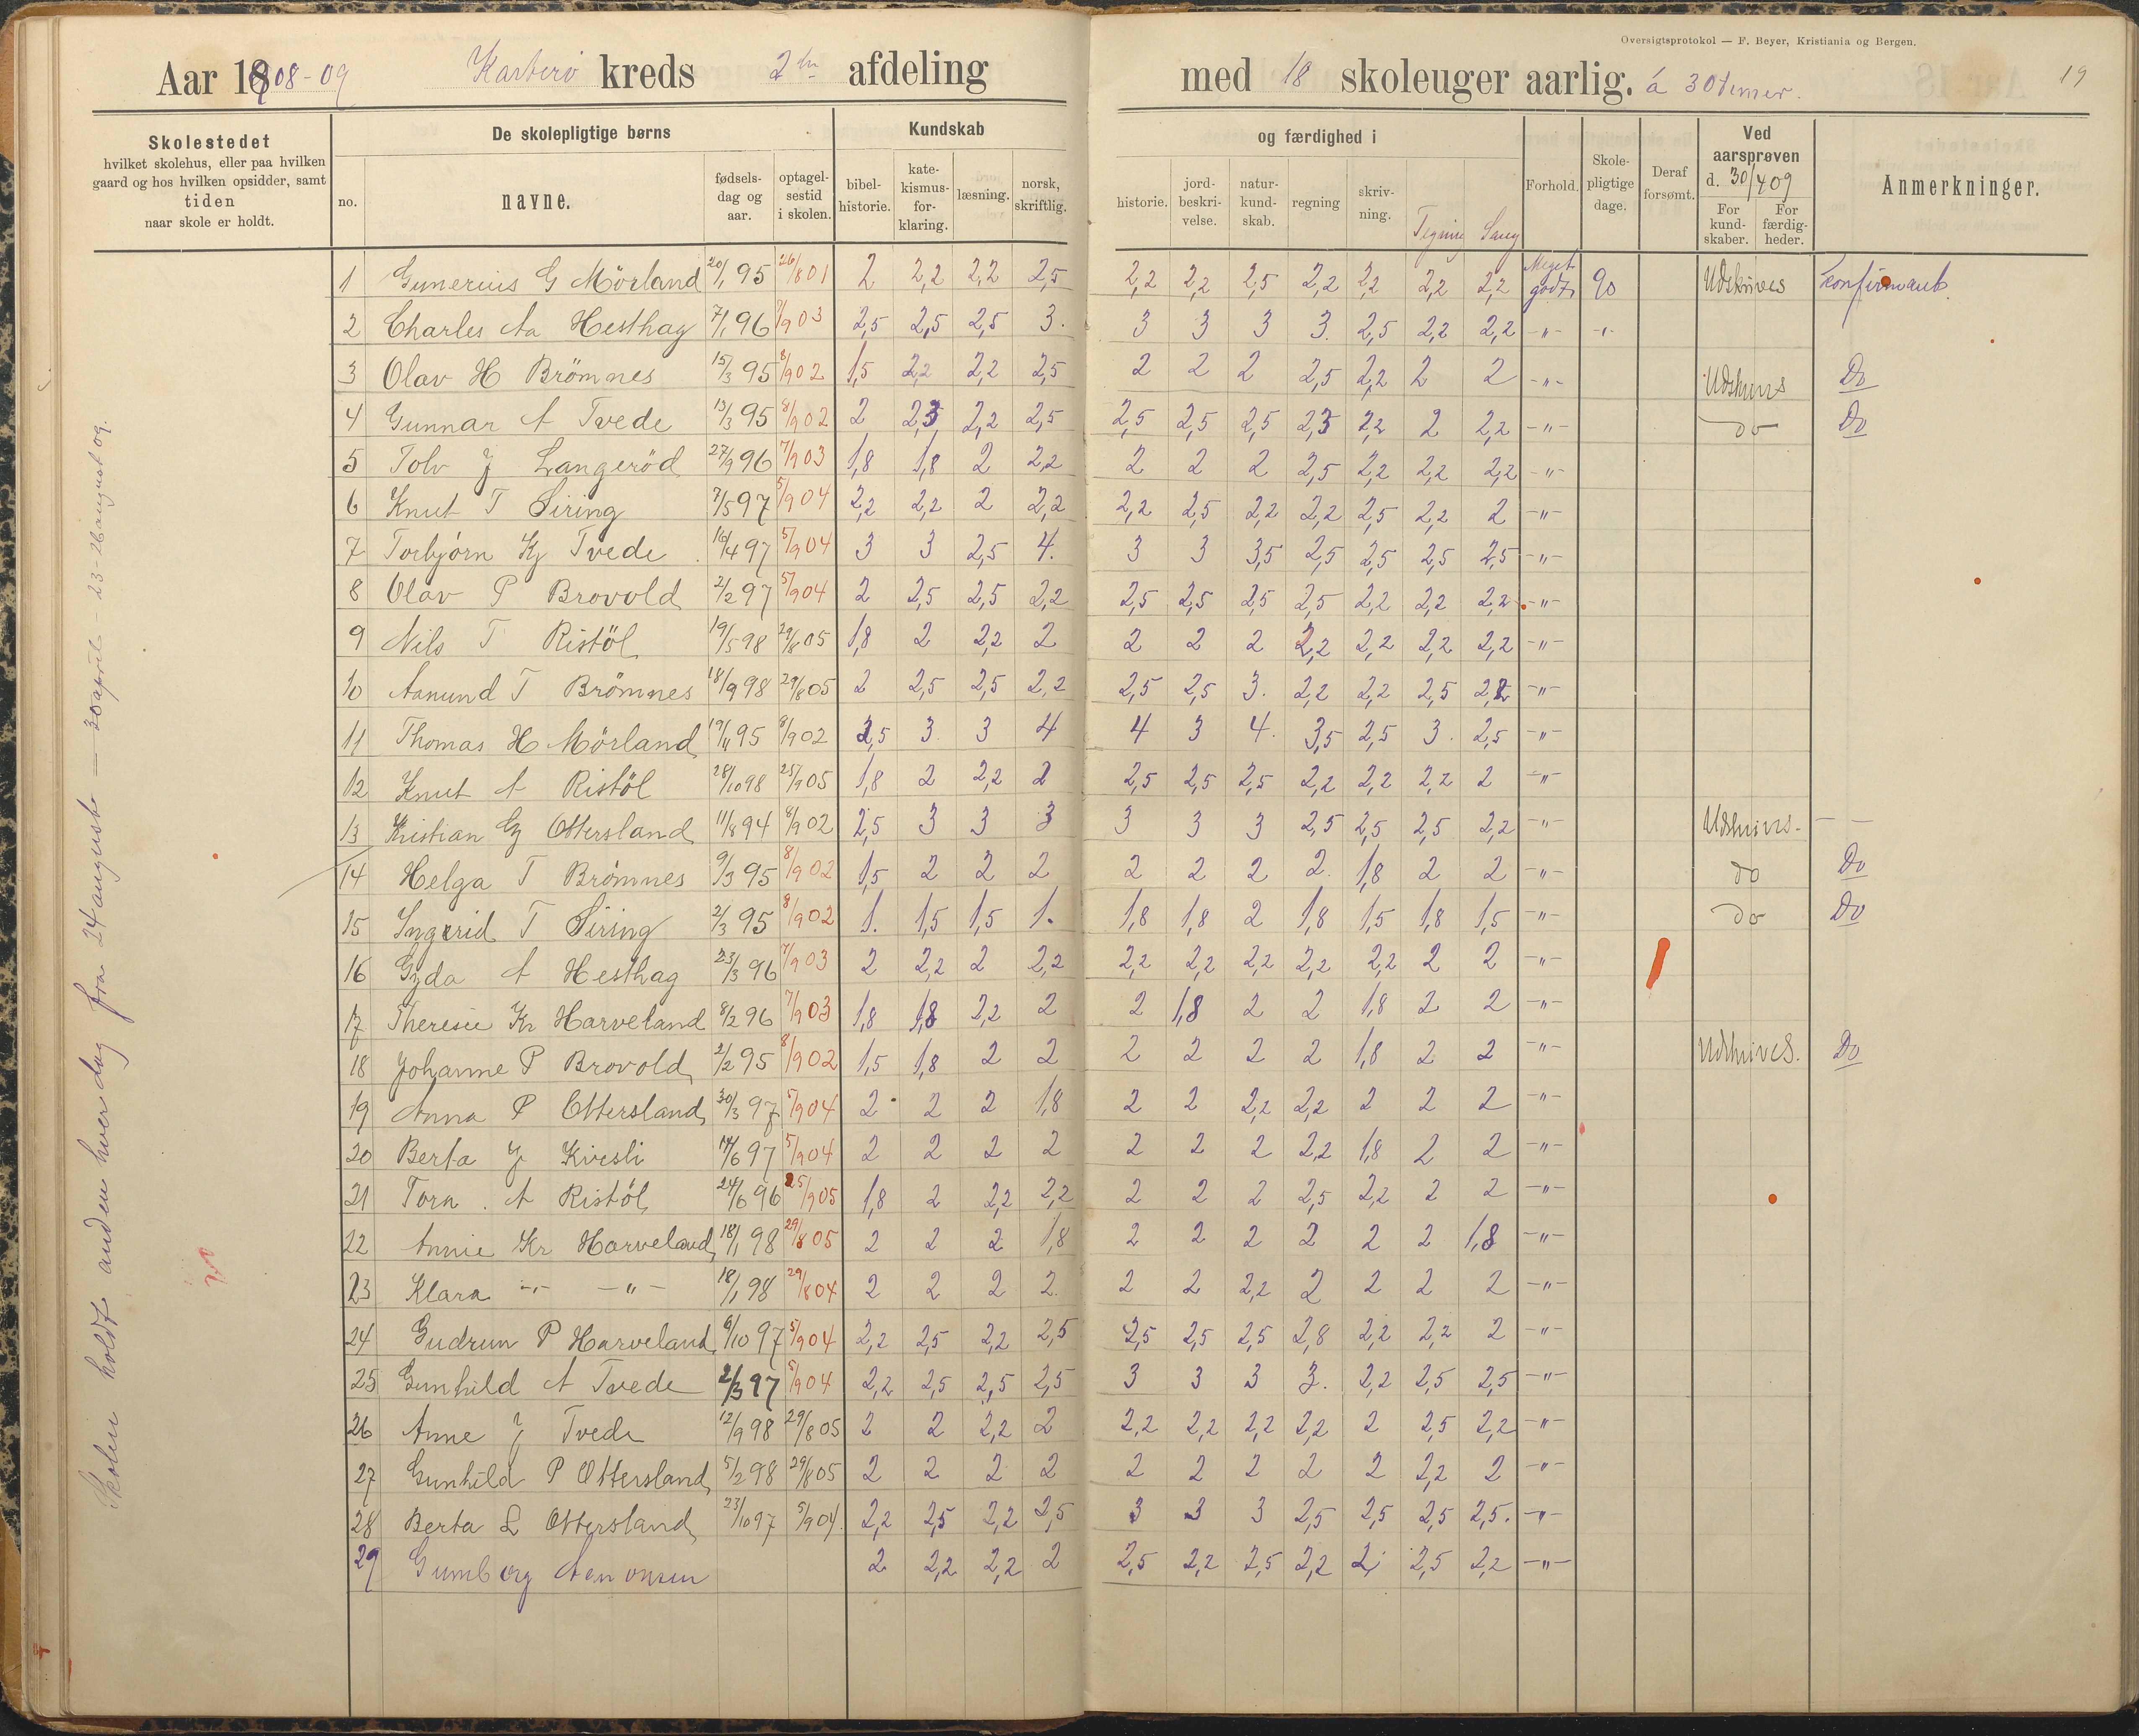 Oversigtsprotokol — F. Beyer, Kristiania og Bergen.
19
Aar 1908-09 kreds 2den afdeling med 18 skoleuger aarlig. á 30 timer.
Skolestedet
hvilket skolehus, eller paa hvilken
gaard og hos hvilken opsidder, samt
tiden
naar skole er holdt.
De skolepligtige børns
no. navne. fødsels-dag og aar. optagel-sestid i skolen.
Kundskab og færdighed i
bibel-historie. kate-kismus-for-klaring. læsning. norsk, skriftlig. historie. jord-beskri-velse. natur-kund-skab. regning skriv-ning. Tegning Sang
Forhold. Skole-pligtige dage. Deraf forsømt. Ved aarsprøven d. 30/4 09 For kund-skaber. For færdig-heder. Anmerkninger.
Skolen holdt anden hver dag fra 24 august 30 april - 23-26 august 09.
1 Gunerius G Mörland 20/1 95 26/8 01 2 2,2 2,2 2,5 2,2 2,2 2,5 2,2 2,2 2,2 2,2 Meget godt 90 Udskrives konfirmant
2 Charles Aa Hesthag 7/1 96 7/9 03 2,5 2,5 2,5 3. 3 3 3 3. 2,5 2,2 2,2 -"- -"-
3 Olav H Brömnes 15/3 95 8/9 02 1,5 2,2 2,2 2,5 2 2 2 2,5 2,2 2 2 -"- Udskrives Do
4 Gunnar A Tvede 13/3 95 8/9 02 2 2,3 2,2 2,5 2,5 2,5 2,5 2,3 2,2 2 2,2 -"- do Do
5 Tolv J Langeröd 27/9 96 7/9 03 1,8 1,8 2 2,2 2 2 2 2,5 2,2 2,2 2,2 -"-
6 Knut T Siring 7/5 97 5/9 04 2,2 2,2 2 2,2 2,2 2,5 2,2 2,2 2,5 2,2 2 -"-
7 Torbjörn Kj Tvede 16/4 97 5/9 04 3 3 2,5 4. 3 3 3,5 2,5 2,5 2,5 2,5 -"-
8 Olav P Brovold 2/2 97 5/9 04 2 2,5 2,5 2,2 2,5 2,5 2,5 2,5 2,2 2,2 2,2 -"-
9 Nils T Ristöl 19/5 98 29/8 05 1,8 2 2,2 2 2 2 2 2,2 2,2 2,2 2,2 -"-
10 Aanund T Brömnes 18/9 98 29/8 05 2 2,5 2,5 2,2 2,5 2,5 3. 2,2 2,2 2,5 2,2 -"-
11 Thomas H Mörland 19/11 95 8/9 02 2,5 3 3 4 4 3 4. 3,5 2,5 3. 2,5 -"-
12 Knut A Ristöl 28/10 98 25/9 05 1,8 2 2,2 2 2,5 2,5 2,5 2,2 2,2 2,2 2 -"-
13 Kristian G Ottersland 11/8 94 8/9 02 2,5 3 3 3 3 3 3 2,5 2,5 2,5 2,2 -"- Udskrives. — —
14 Helga T Brömnes 9/3 95 8/9 02 1,5 2 2 2 2 2 2 2. 1,8 2 2 -"- do Do
15 Ingerid T Siring 2/3 95 8/9 02 1. 1,5 1,5 1. 1,8 1,8 2 1,8 1,5 1,8 1,5 -"- do Do
16 Gyda A Hesthag 23/3 96 7/9 03 2 2,2 2 2,2 2,2 2,2 2,2 2,2 2,2 2 2 -"-
17 Theresie Kr Harveland 8/2 96 7/9 03 1,8 1,8 2,2 2 2 1,8 2 2 1,8 2 2 -"-
18 Johanne P Brovold 2/2 95 8/9 02 1,5 1,8 2 2 2 2 2 2 1,8 2 2 -"- Udskrives. Do
19 Anna P Ottersland 30/3 97 5/9 04 2 2 2 1,8 2 2 2,2 2,2 2 2 2 -"-
20 Berta J Kvesli 14/6 97 5/9 04 2 2 2 2 2 2 2 2,2 1,8 2 2 -"-
21 Tora A Ristöl 24/6 96 25/9 05 1,8 2 2,2 2,2 2 2 2 2,5 2,2 2 2 -"-
22 Annie Kr Harveland 18/1 98 29/8 05 2 2 2 1,8 2 2 2 2 2 2 1,8 -"-
23 Klara -"- -"- 18/1 98 29/8 04 2 2 2 2. 2 2 2,2 2 2 2 2 -"-
24 Gudrun P Harveland 6/10 97 5/9 04 2,2 2,5 2,2 2,5 2,5 2,5 2,5 2,8 2,2 2,2 2 -"-
25 Gunhild A Tvede 2/3 97 5/9 04 2,2 2,5 2,5 2,5 3 3 3 3. 2,2 2,5 2,5 -"-
26 Anne J Tvede 12/9 98 29/8 05 2 2 2,2 2 2,2 2,2 2,2 2,2 2 2,5 2,2 -"-
27 Gunhild P Ottersland 5/2 98 29/8 05 2 2 2 2 2 2 2 2 2 2,2 2 -"-
28 Berta L Ottersland 23/10 97 5/9 04. 2,2 2,5 2,2 2,5 3 3 3 2,5 2,5 2,5 2,5. -"-
29 Gumborg 2 2,2 2,2 2 2,5 2,2 2,5 2,2 2 2,5 2,2 -"-